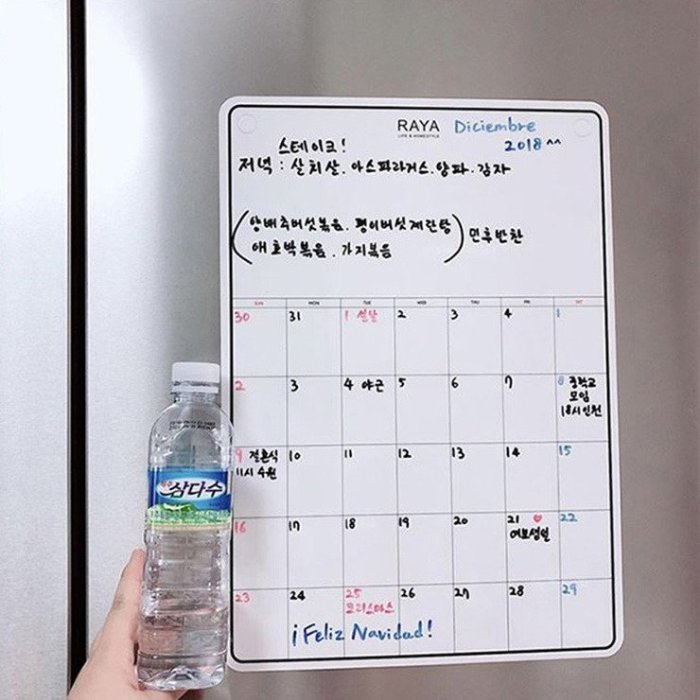 RAYA Diciembre
LIFE & HOMESTYLE
2018^^
스테이크!
저녁 : 살치살.아스파라거스.양파.감자
(양배추버섯볶음. 팽이버섯계란탕
애호박볶음. 가지볶음) 민후반찬
SUN MON TUE WED THU FRI SAT
30 31 1 설날 2 3 4 1
2 3 4 야근 5 6 7 8 중학교
모임
18시 인천
9 결혼식 10 11 12 13 14 15
11시 수원
16 17 18 19 20 21 ♥ 22
여보생일
23 24 25 26 27 28 29
크리스마스
¡Feliz Navidad!
삼다수